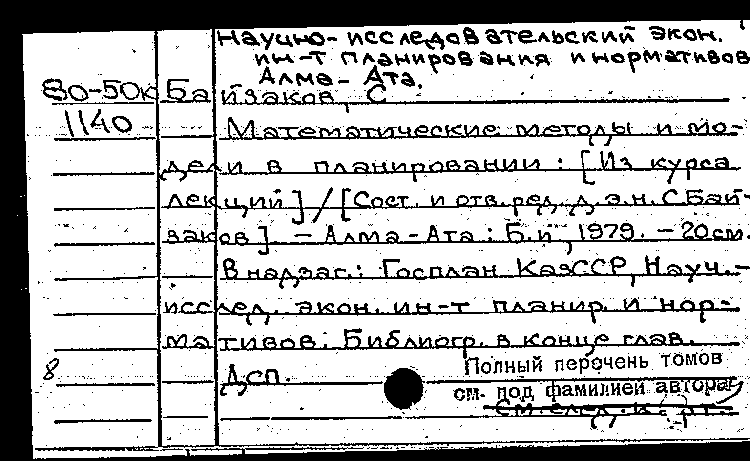 Научно-исследовательский экон.
ин-т планирования и нормативов
Алма-Ата.
80-50к Байзаков, С
1140 Математические методы и мо-
дели в планировании: [Из курса
лекций] / [Сост. и отв. ред. д.э.н. С. Бай-
заков]. – Алма-Ата: Б.и., 1979. – 20 см.
В надзаг.: Госплан КазССР, Науч.-
исслед. экон. ин-т планир. и нор-
мативов. Библиогр. в конце глав.
8 Дсп.
Полный перечень томов
см. под фамилией автора
См. след. к-рт.